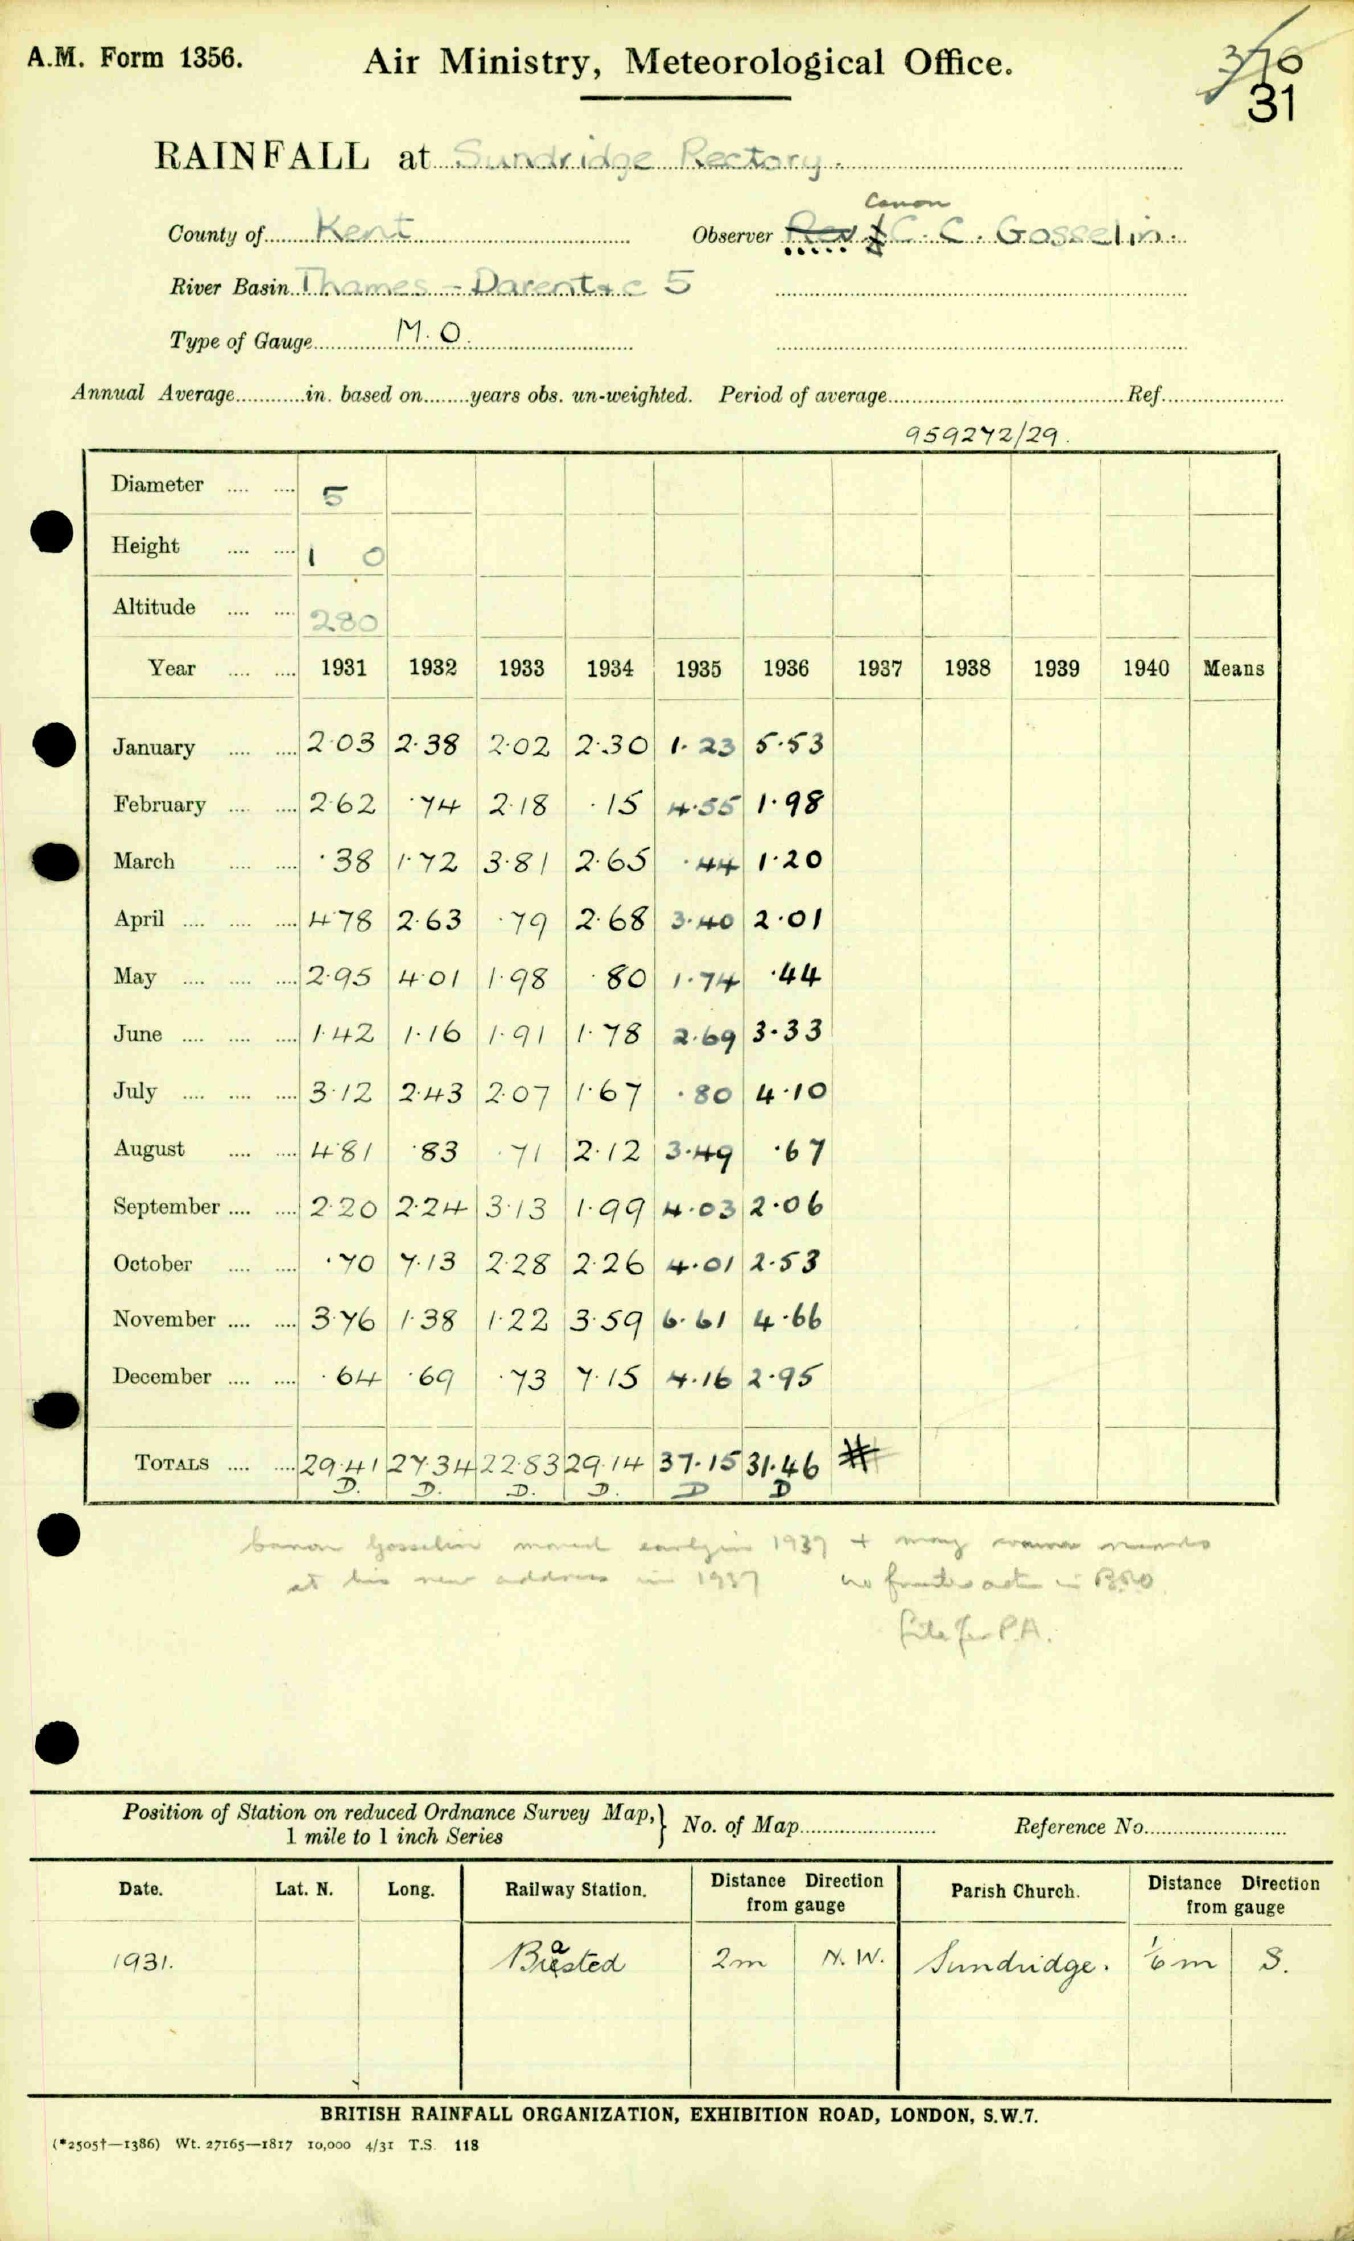 A.M. Form 1356.
Air Ministry, Meteorological Office.
3/76
31
RAINFALL at Sundridge Rectory.
Canon
County of Kent Observer Rev. C. C. Gosselin.
River Basin Thames - Darent &c 5
Type of Gauge M.O.
Annual Average in. based on years obs. un-weighted. Period of average Ref.
959272/29.
Diameter .... .... 5
Height .... .... 1 0
Altitude .... .... 280
Year .... .... 1931 1932 1933 1934 1935 1936 1937 1938 1939 1940 Means
January .... .... 2·03 2·38 2·02 2·30 1·23 5·53
February .... .... 2·62 ·74 2·18 ·15 4·55 1·98
March .... .... ·38 1·72 3·81 2·65 ·44 1·20
April .... .... .... 4·78 2·63 ·79 2·68 3·40 2·01
May .... .... .... 2·95 4·01 1·98 ·80 1·74 ·44
June .... .... .... 1·42 1·16 1·91 1·78 2·69 3·33
July .... .... .... 3·12 2·43 2·07 1·67 ·80 4·10
August .... .... 4·81 ·83 ·71 2·12 3·49 ·67
September .... .... 2·20 2·24 3·13 1·99 4·03 2·06
October .... .... ·70 7·13 2·28 2·26 4·01 2·53
November .... .... 3·76 1·38 1·22 3·59 6·61 4·66
December .... .... ·64 ·69 ·73 7·15 4·16 2·95
TOTALS .... .... 29·41 27·34 22·83 29·14 37·15 31·46 #
D. D. D. D. D D
Canon Gosselin moved early in 1937 + may
at his new address in 1937 no in B.R.O.
file for P.A.
Position of Station on reduced Ordnance Survey Map, } No. of Map Reference No.
1 mile to 1 inch Series
Date. Lat. N. Long. Railway Station. Distance Direction from gauge Parish Church. Distance Direction from gauge
1931. Brasted 2m N.W. Sundridge. 1/6 m S.
BRITISH RAINFALL ORGANIZATION, EXHIBITION ROAD, LONDON, S.W.7.
(*2505†—1386) Wt. 27165—1817 10,000 4/31 T.S. 118